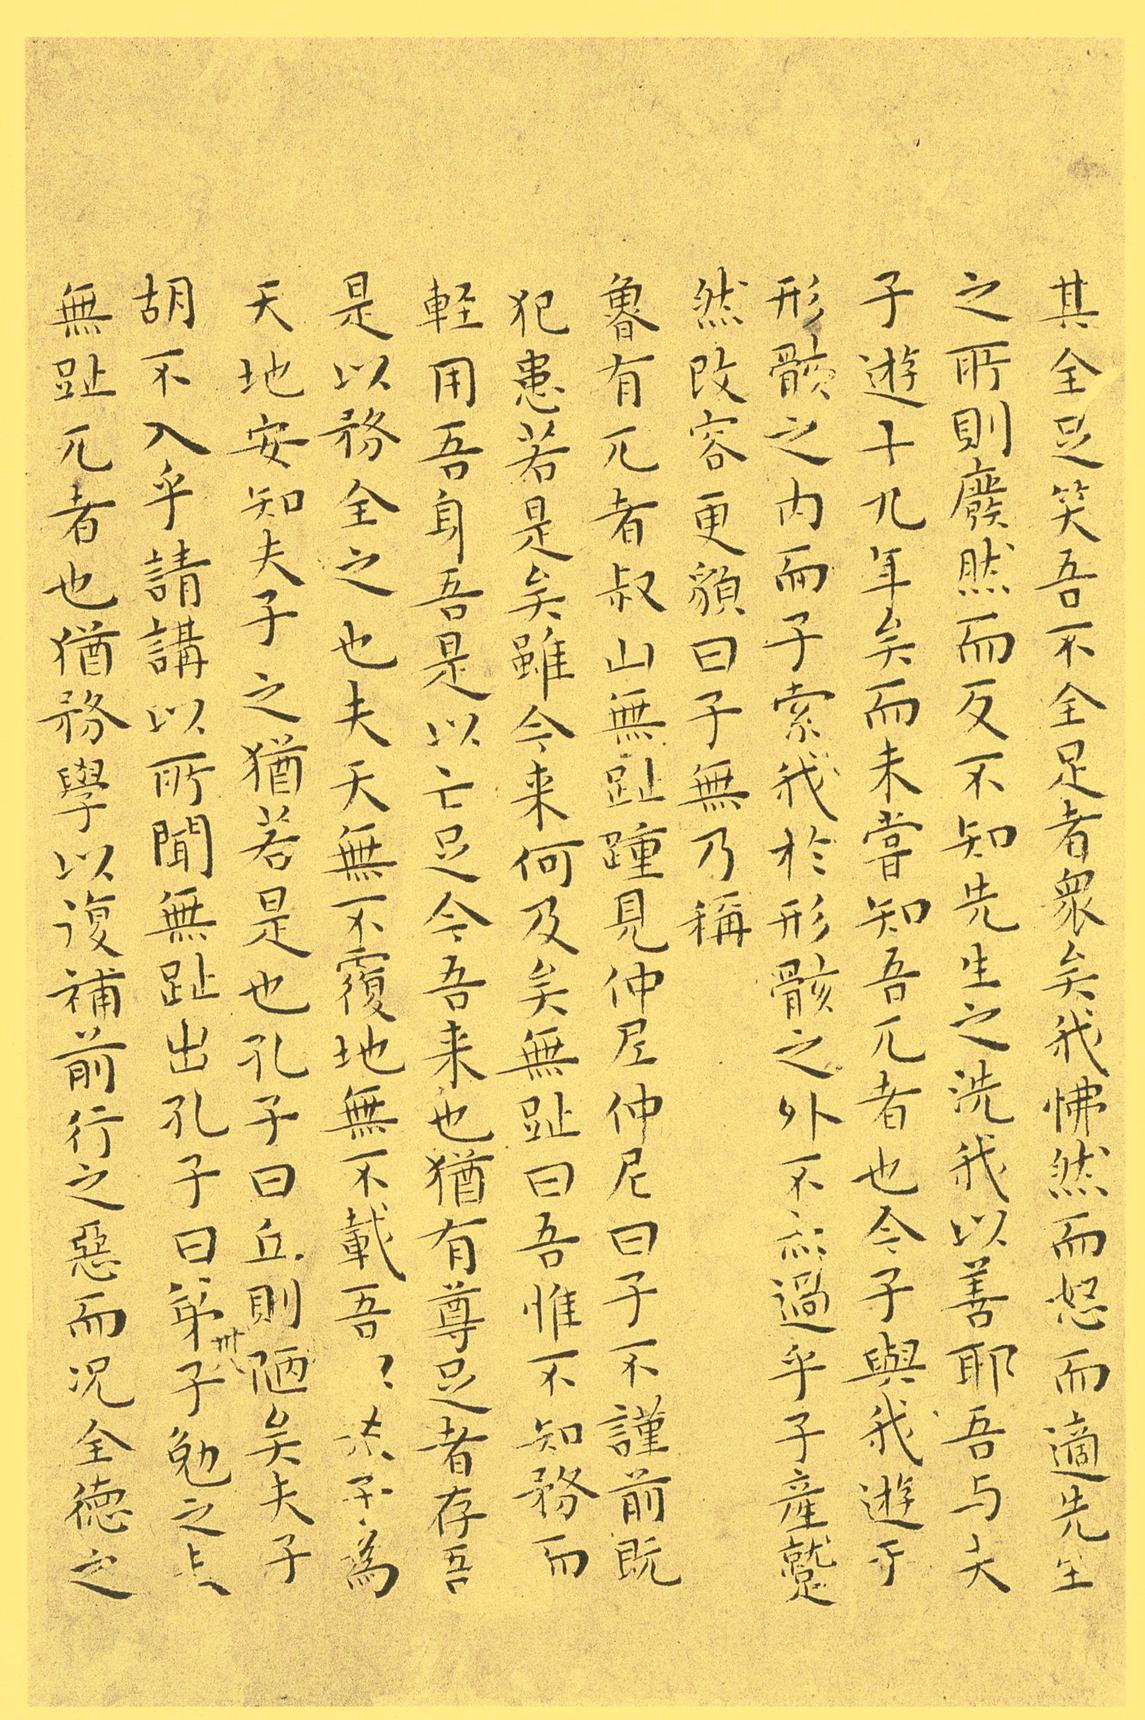 其全足笑吾不全足者衆矣我怫然而怒而適先生
之所則廢然而反不知先生之洗我以善耶吾与夫
子遊十九年矣而未嘗知吾兀者也今子與我遊于
形骸之内而子索我於形骸之外不亦過乎子産蹵
然改容更貌曰子無乃稱
魯有兀者叔山無趾踵見仲尼仲尼曰子不謹前既
犯患若是矣雖今来何及矣無趾曰吾惟不知務而
軽用吾身吾是以亡足今吾来也猶有尊足者存吾
是以務全之也夫天無不覆地無不載吾〻夫子為
天地安知夫子之猶若是也孔子曰丘則陋矣夫子
胡不入乎請講以所聞無趾出孔子曰弟子勉之
無趾兀者也猶務學以復補前行之惡而况全德之